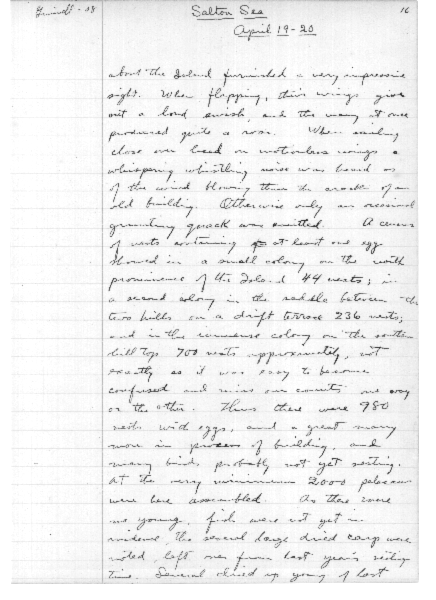 Grinnell - '08
Salton Sea
16
April 19-20
about the Island furnished a very impressive
sight. When flapping, their wings give
out a loud swish, and the many at once
produced quite a roar. When sailing
close over head on motionless wings a
whispering whistling noise was heard as
of the wind blowing thru the cracks of an
old building. Otherwise only an occasional
grunting quack was emitted. A census
of nests containing at least one egg
showed in a small colony on the north
prominence of the Island 44 nests; in
a second colony in the saddle between the
two hills on a drift terrace 236 nests;
and in the immense colony on the south
hill top 700 nests approximately, not
exactly as it was easy to become
confused and miss our counts one way
or the other. Thus there were 980
nests with eggs, and a great many
more in process of building, and
many birds probably not yet nesting.
At the very minimum 2000 pelicans
were here assembled. As there were
no young, fish were not yet in
evidence, tho several large dried carp were
noted left over from last year's nesting
time. Several dried up young of last